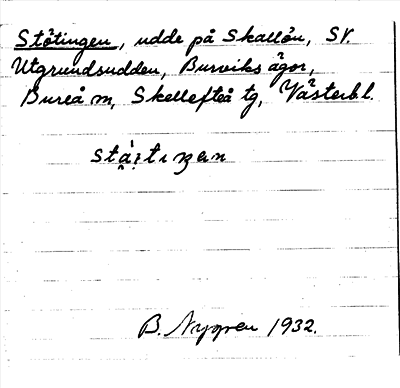 Stötingen, udde på Skallön, SV.
Utgrundsudden, Burviks ägor,
Bureå sn, Skellefteå tg, Västerb l.
B. Nygren 1932.